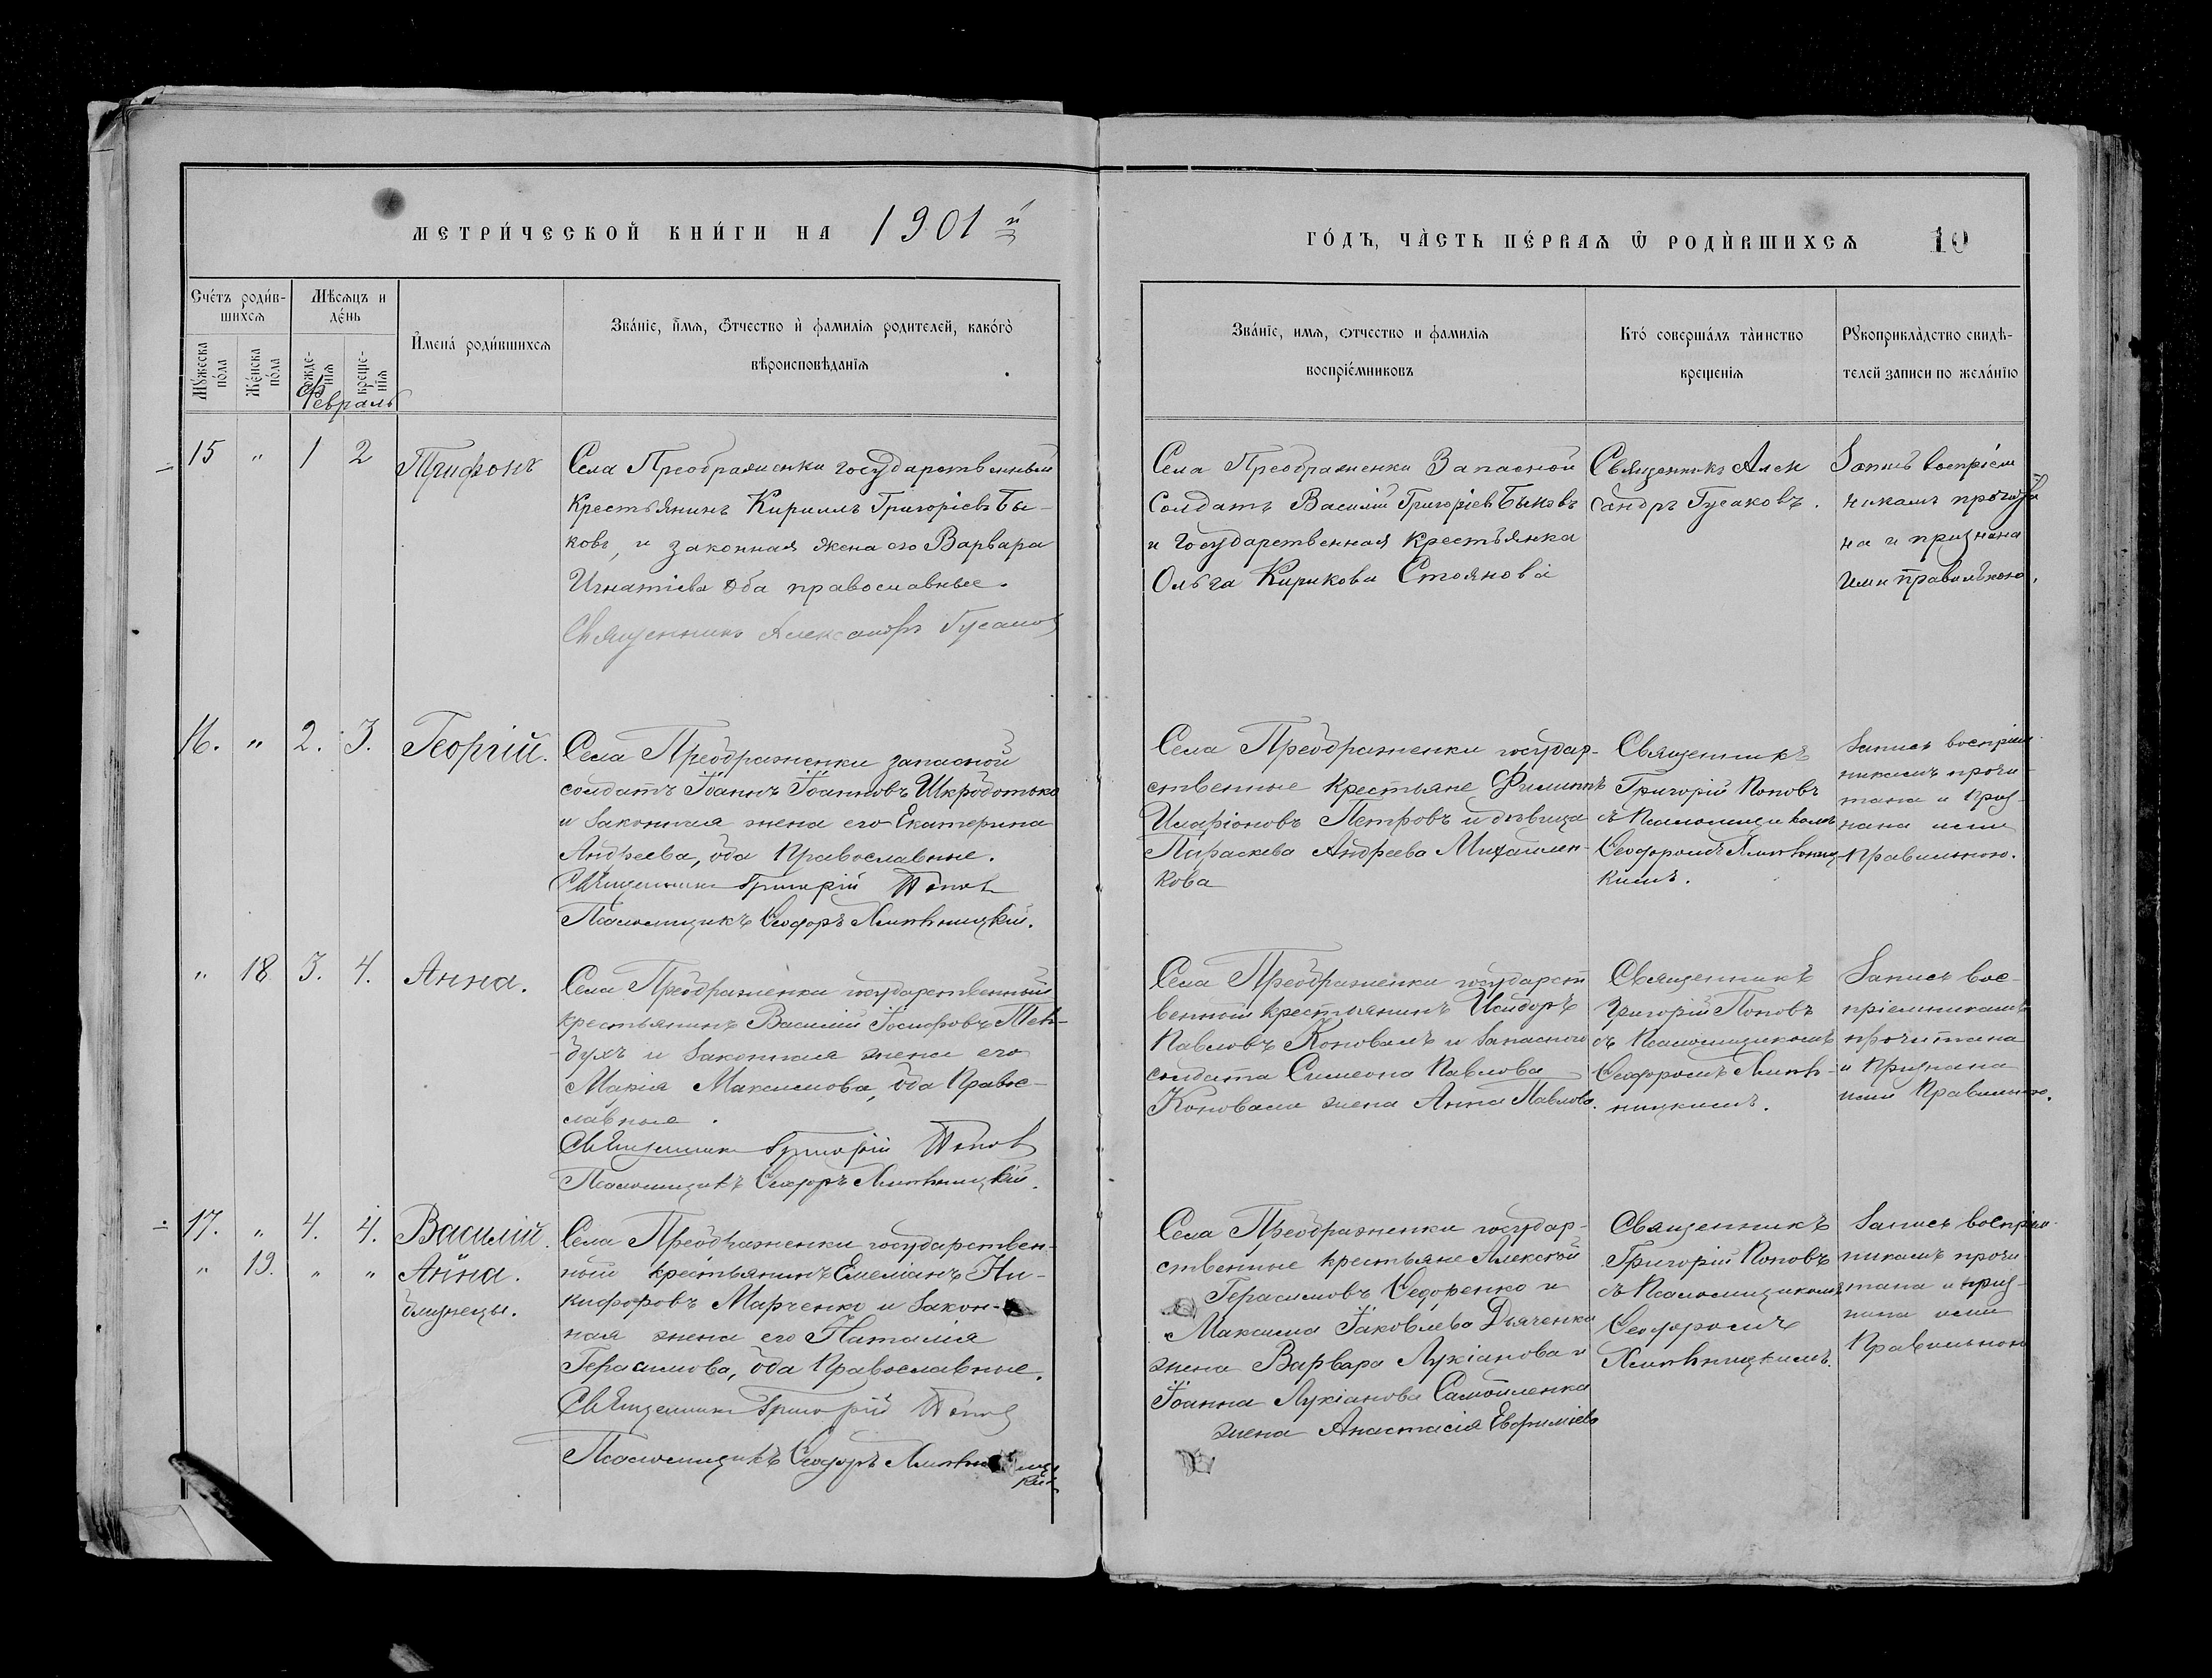 МЕТРИ́ЧЕСКОЙ КНИ́ГИ НА 1901 й
ГО́ДЪ, ЧА̀СТЬ ПЕ́РВАѦ Ѡ҆ РОДИ́ВШИХСѦ 10
Сче́тъ роди́в-
шихсѧ
Мѣсѧцъ и
де́нь
Мꙋ́жеска
по́ла
Же́нска
по́ла
рожде-
нїѧ
креще-
нїѧ
Февраль
И҆мена́ роди́вшихсѧ
Зва́нїе, и҆́мѧ, ѻ҆́тчество и҆ фамилїѧ родителей, како́гѡ
вѣроисповѣ́данїѧ
Зва́нїе, имѧ, ѻтчество и фамилїѧ
воспрїе́мниковъ
Кто̀ соверша́лъ та̀инство
креще́нїѧ
Рꙋкоприкла̀дство свидѣ-
телей записи по жела́нїю
15 " 1 2 Трифонъ
Села Преображенки государственный
крестьянинъ Кириллъ Григоріевъ Бы-
ковъ, и законная жена его Варвара
Игнатіева оба православные.
Священникъ Александръ Гусаковъ
Села Преображенки Запасной
Солдатъ Василій Григоріевъ Быковъ
и Государственная Крестьянка
Ольга Кирикова Стоянова
Священникъ Алек
сандръ Гусаковъ.
Запись воспріем
никамъ прочита
на и признана
ими правильною.
16. " 2. 3. Георгій.
Села Преображенки запасной
солдатъ Іоаннъ Іоанновъ
и законная жена его Екатерина
Андреева, оба Православные.
Священникъ Григорій Поповъ
Псаломщикъ Ѳеодоръ
Села Преображенки государ-
ственные крестьяне Филиппъ
Иларіоновъ Петровъ и дѣвица
Параскева Андреева Михайлен-
кова
Священникъ
Григорій Поповъ
съ Псаломщикомъ
Ѳеодоромъ
кимъ.
Запись воспріем
никамъ прочи-
тана и приз-
нана ими
Правильною.
" 18 3. 4. Анна.
Села Преображенки государственный
крестьянинъ Василій Іосифовъ
и законная жена его
Марія Максимова, оба Право-
славные.
Священникъ Григорій Поповъ
Псаломщикъ Ѳеодоръ
Села Преображенки государст
венный крестьянинъ Исидоръ
Павловъ Коновалъ и запаснаго
солдата Симеона Павлова
Коновала жена Анна Павлова.
Священникъ
Григорій Поповъ
съ Псаломщикомъ
Ѳеодоромъ
ницкимъ.
Запись вос-
пріемникамъ
прочитана
и Признана
ими Правильною.
17. " 4. 4. Василій.
" 19. " " Анна.
близнецы.
Села Преображенки государствен-
ный крестьянинъ Емеліанъ Ни-
кифоровъ Марченко и закон-
ная жена его Наталія
Герасимова, оба Православные.
Священникъ Григорій Поповъ
Псаломщикъ Ѳеодоръ
Села Преображенки государ-
ственные крестьяне Алексѣй
Герасимовъ Ѳедоренко и
Максима Іаковлева Дьяченка
жена Варвара Лукіанова и
Іоанна Лукіанова Самойленка
жена Анастасія Евфиміева
Священникъ
Григорій Поповъ
съ Псаломщикомъ
Ѳеодоромъ
Запись воспріем
никамъ прочи
тана и приз-
нана ими
Правильною